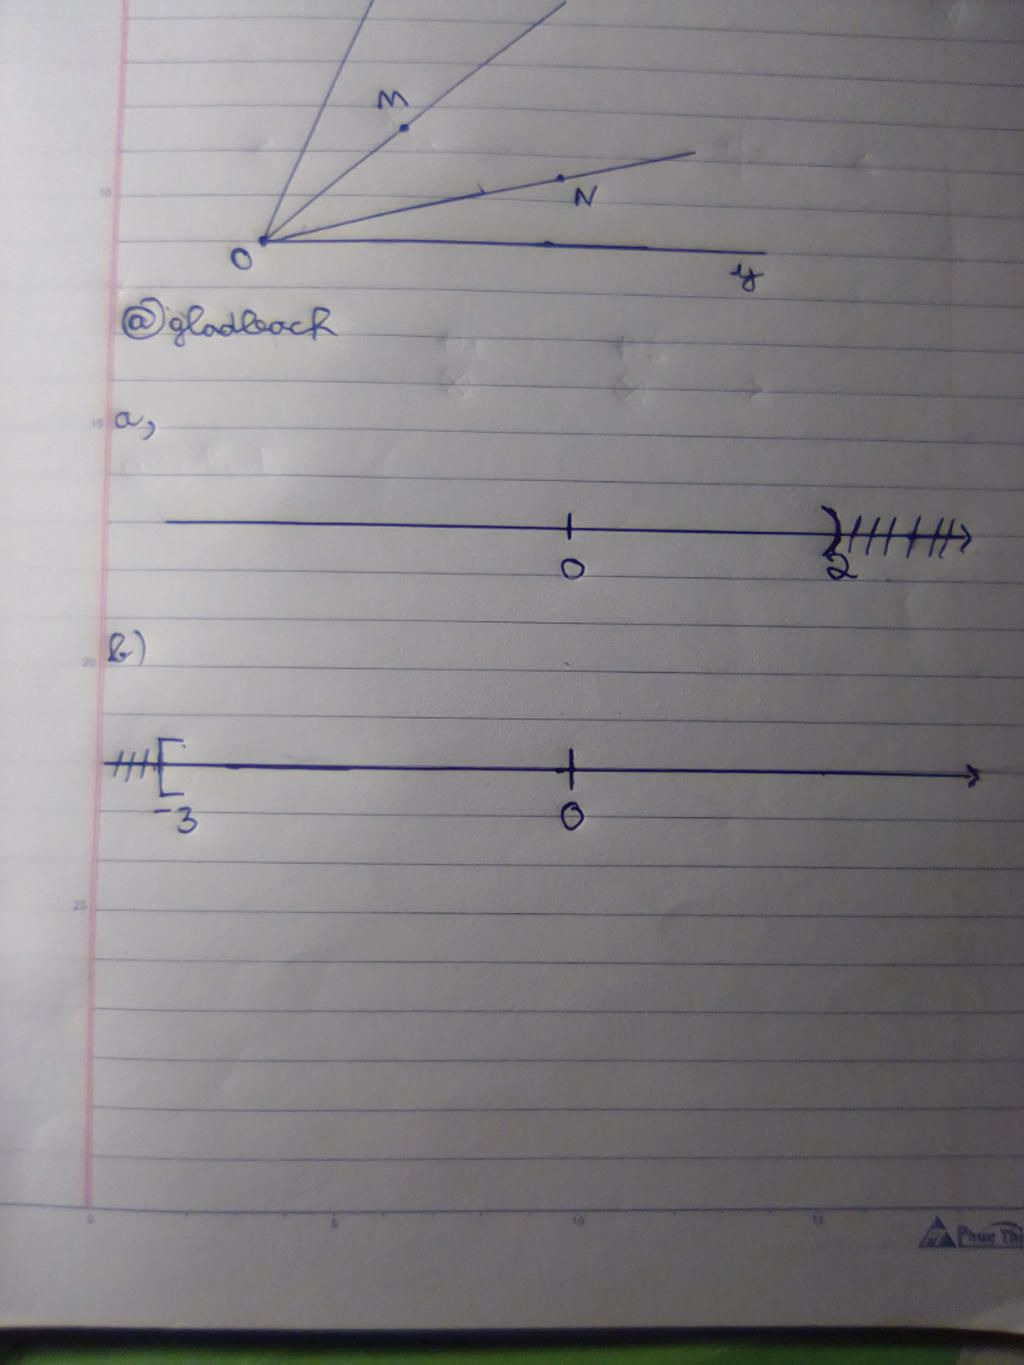 M
N
O
y
@gladbach
a,
0
2
b)
-3
0
10
15
20
25
0
5
10
15